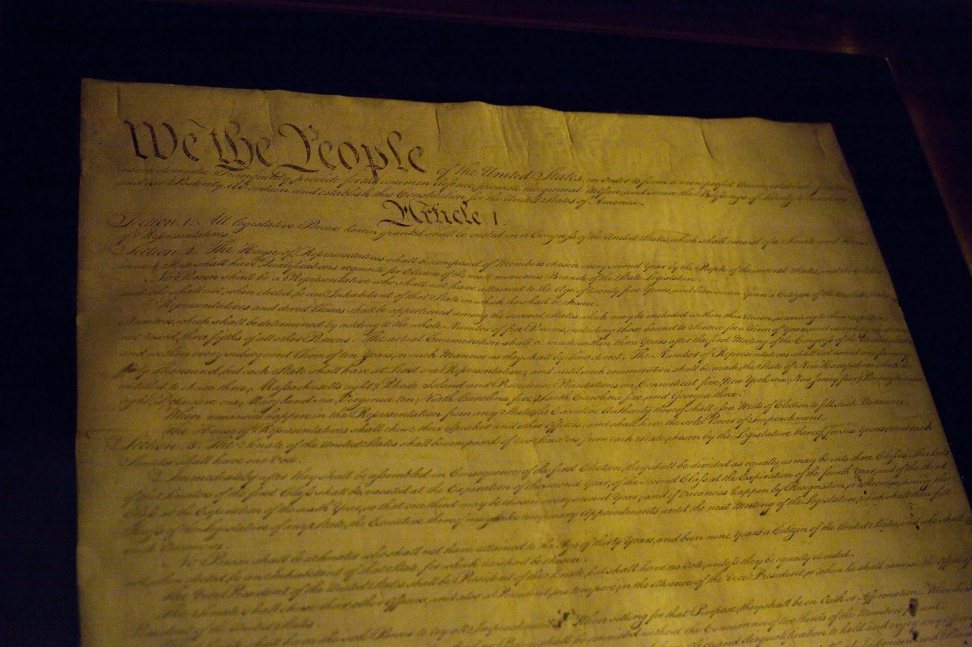 We the People of the United States, in order to form a more perfect Union,
insure domestic Tranquility, provide for the common defence, promote the general Welfare, and secure the Blessings of Liberty to
and our Posterity, do ordain and establish this Constitution for the United States of America.
Article I
Section 1. All legislative Powers herein granted shall be vested in a Congress of the United States, which shall consist of a Senate and House
of Representatives.
Section 2. The House of Representatives shall be composed of Members chosen every second Year by the People of the several States, and the
in each State shall have Qualifications requisite for Electors of the most numerous Branch of the State Legislature.
No Person shall be a Representative who shall not have attained to the Age of twenty five Years, and been seven Years a Citizen of the United States,
and who shall not, when elected, be an Inhabitant of that State in which he shall be chosen.
Representatives and direct Taxes shall be apportioned among the several States which may be included within this Union, according to their
Numbers, which shall be determined by adding to the whole Number of free Persons, including those bound to Service for a Term of Years, and
not taxed, three fifths of all other Persons. The actual Enumeration shall be made within three Years after the first Meeting of the Congress of the United
and within every subsequent Term of ten Years, in such Manner as they shall by Law direct. The Number of Representatives shall not exceed one for every
thirty Thousand, but each State shall have at Least one Representative; and until such enumeration shall be made, the State of New Hampshire shall be
entitled to chuse three, Massachusetts eight, Rhode Island and Providence Plantations one, Connecticut five, New York six, New Jersey four, Pennsylvania
eight, Delaware one, Maryland six, Virginia ten, North Carolina five, South Carolina five, and Georgia three.
When vacancies happen in the Representation from any State, the Executive Authority thereof shall issue Writs of Election to fill such Vacancies.
The House of Representatives shall chuse their Speaker and other Officers; and shall have the sole Power of Impeachment.
Section 3. The Senate of the United States shall be composed of two Senators from each State, chosen by the Legislature thereof, for six Years; and each
Senator shall have one Vote.
Immediately after they shall be assembled in Consequence of the first Election, they shall be divided as equally as may be into three Classes. The Seats
of the Senators of the first Class shall be vacated at the Expiration of the second Year, of the second Class at the Expiration of the fourth Year, and of the third
Class at the Expiration of the sixth Year, so that one third may be chosen every second Year; and if Vacancies happen by Resignation, or otherwise, during the
Recess of the Legislature of any State, the Executive thereof may make temporary Appointments until the next Meeting of the Legislature, which shall then fill
such Vacancies.
No Person shall be a Senator who shall not have attained to the Age of thirty Years, and been nine Years a Citizen of the United States, and who shall
not, when elected, be an Inhabitant of that State for which he shall be chosen.
The Vice President of the United States shall be President of the Senate, but shall have no Vote, unless they be equally divided.
The Senate shall chuse their other Officers, and also a President pro tempore, in the Absence of the Vice President, or when he shall exercise the Office of
President of the United States.
The Senate shall have the sole Power to try all Impeachments. When sitting for that Purpose, they shall be on Oath or Affirmation. When
shall be convicted without the Concurrence of two thirds of the Members present.
and disqualification to hold and enjoy any